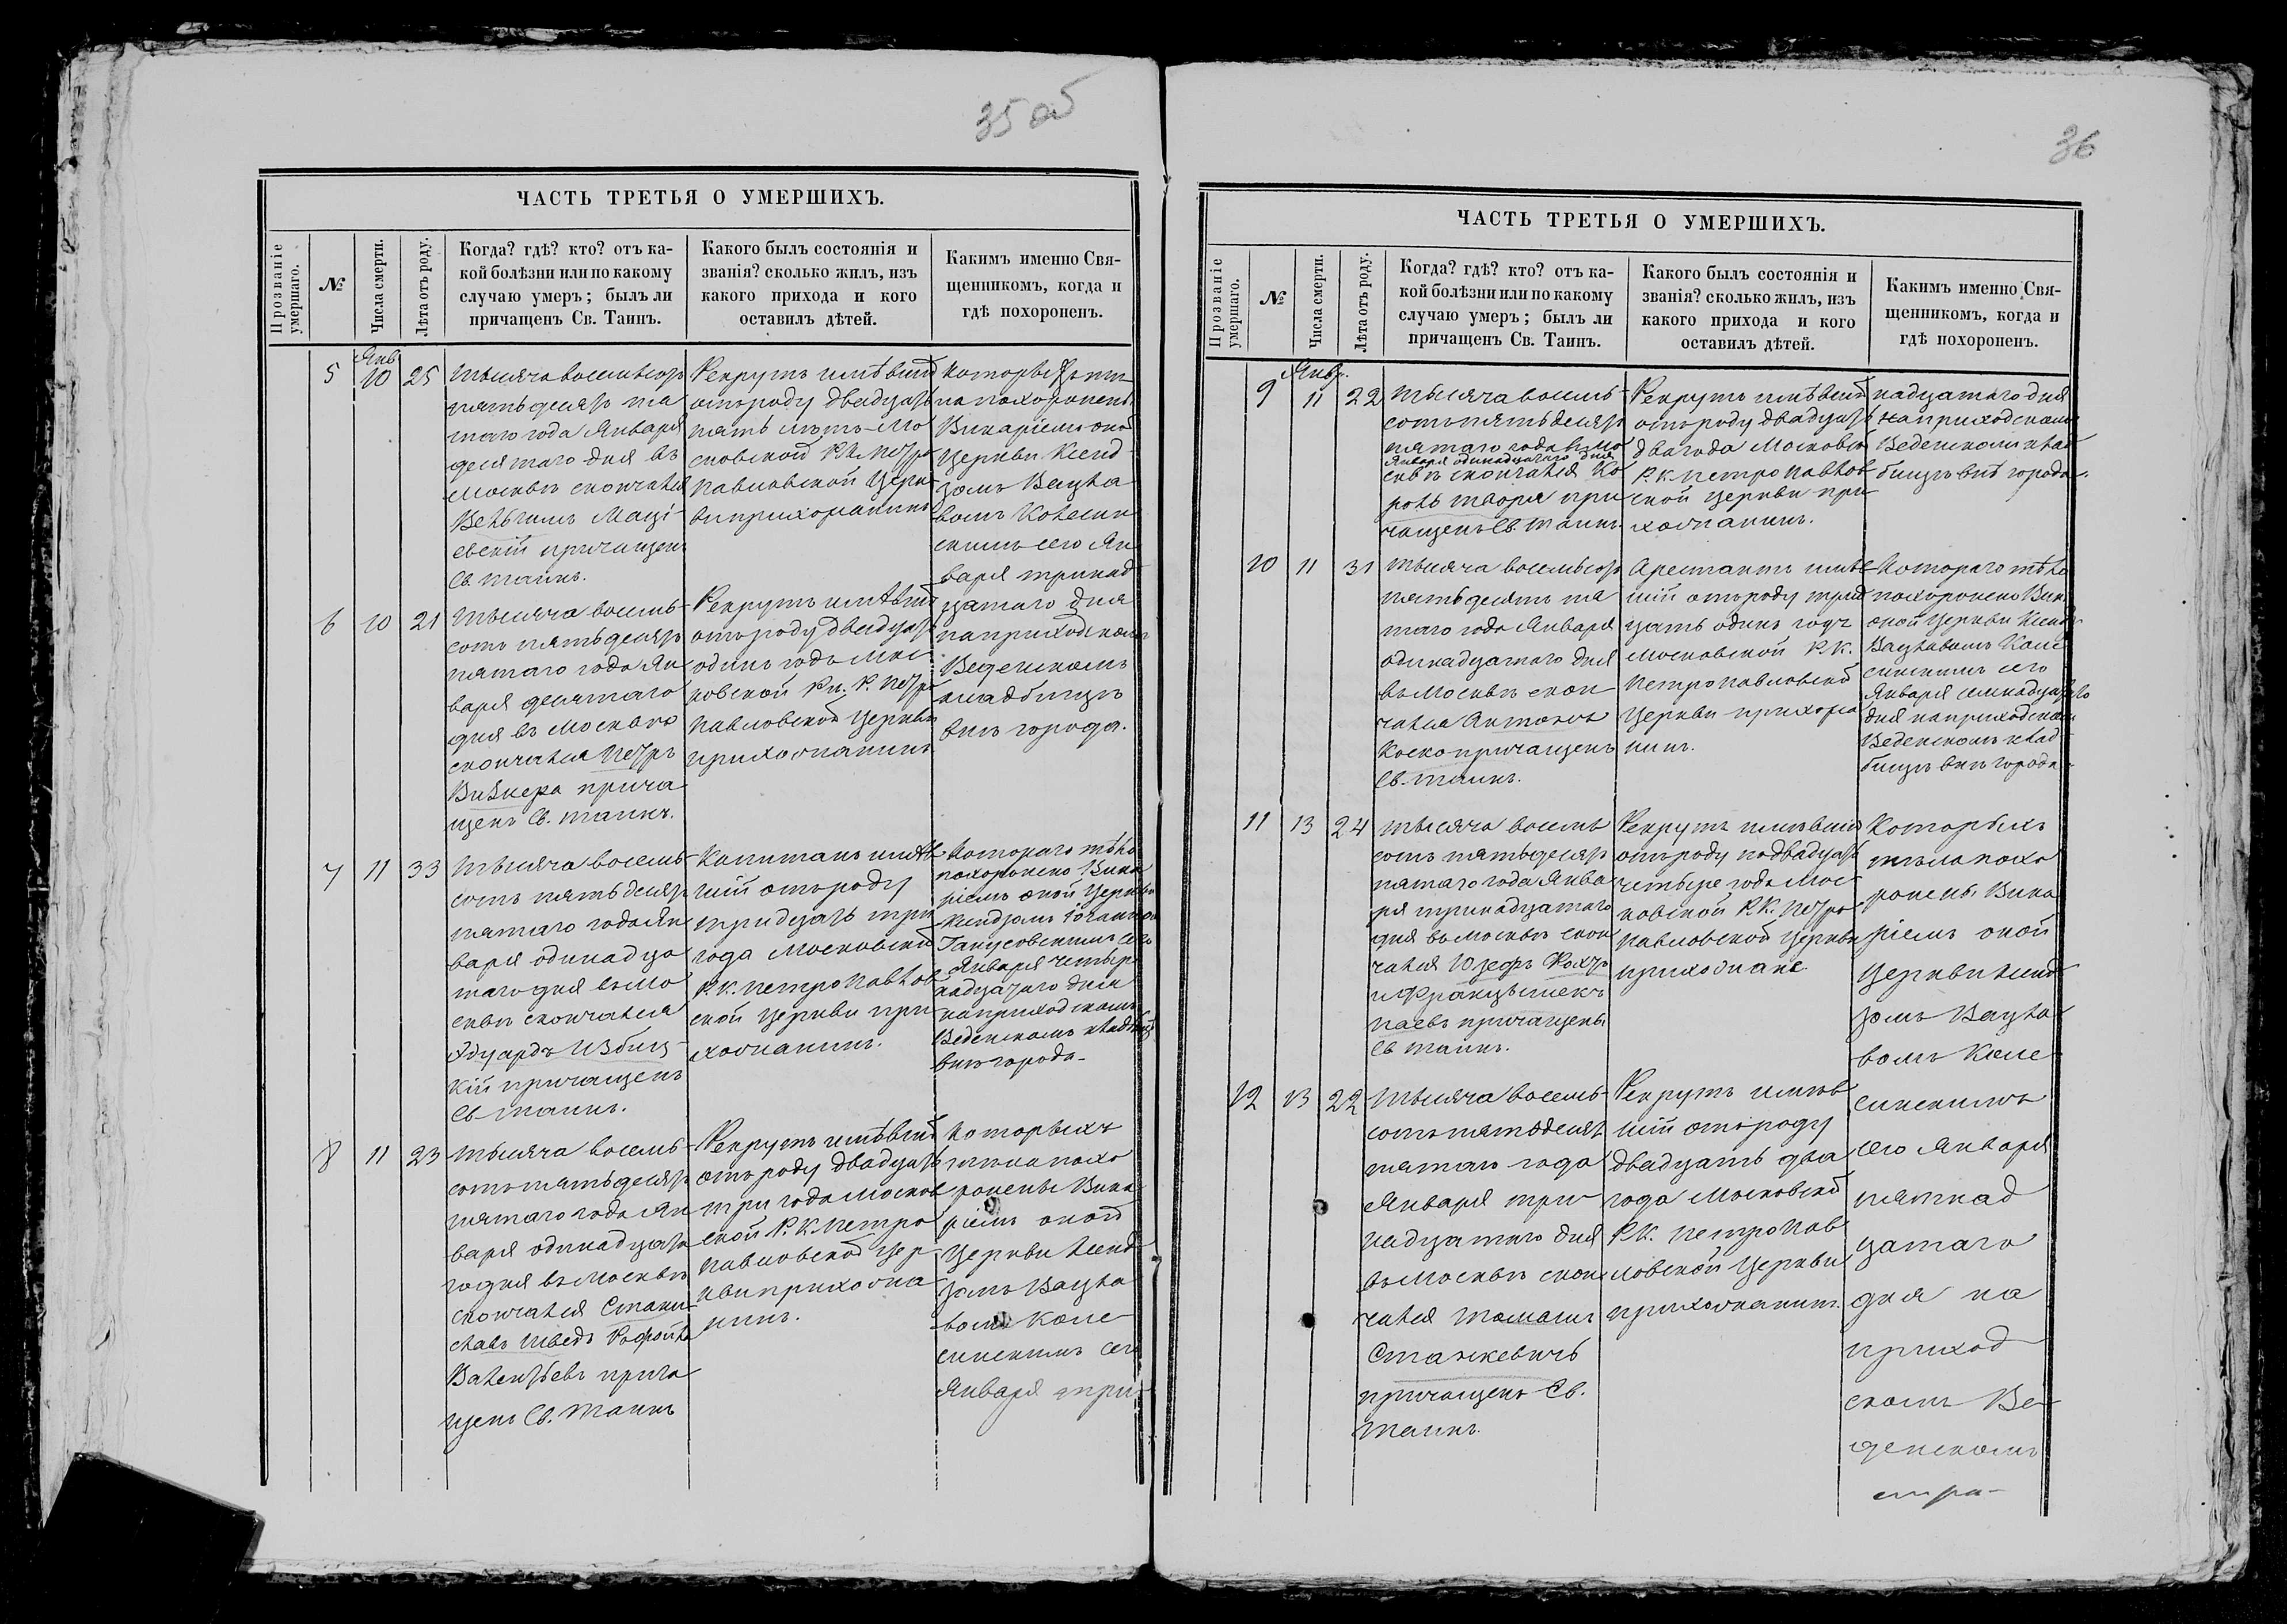 35 об
ЧАСТЬ ТРЕТЬЯ О УМЕРШИХЪ.
Прозваніе умершаго.
№
Числа смерти.
Лѣта отъ роду.
Когда? гдѣ? кто? отъ ка-
кой болѣзни или по какому
случаю умеръ; былъ ли
причащенъ Св. Таинъ.
Какого былъ состоянія и
званія? сколько жилъ, изъ
какого прихода и кого
оставилъ дѣтей.
Какимъ именно Свя-
щенникомъ, когда и
гдѣ похороненъ.
5
Янв
10
25
Тысяча восемьсотъ
пятьдесятъ пя
таго года Января
десятаго дня въ
Москвѣ скончался
Вельгимъ Маці-
евскій причащенъ
Св. таинъ.
Рекрутъ имѣвшій
отъ роду двадцать
пять лѣтъ Мо
сковской Р.К. Петро
Павловской Церк
ви прихожанинъ
ла похоронены
Викаріемъ оной
Церкви Ксенд-
зомъ Вацла
вомъ Колесин
скимъ сего Ян
варя тринад
цатаго дня
на приходскомъ
Веденскомъ
кладбищѣ
внѣ города.
6
10
21
Тысяча восемь-
сотъ пятьдесятъ
пятаго года Ян
варя десятаго
дня въ Москвѣ
скончался Петръ
причa
щенъ Св. таинъ.
Рекрутъ имѣвшій
отъ роду двадцать
одинъ годъ Мос
ковской Р. Петро
Павловской Церкви
прихожанинъ
7
11
33
Тысяча восемь-
сотъ пятьдесятъ
пятаго года Ян
варя одинадца
таго дня въ Мо
сквѣ скончался
Эдуардъ Избиц-
кій причащенъ
Св. таинъ.
Капитанъ имѣв
шій отъ роду
тридцать три
года Московской
Р.К. Петропавлов
ской Церкви при
хожанинъ.
Котораго тѣло
похоронено Вика
ріемъ оной Церкви
Ксендзомъ
сего
Января четыр
надцатаго дня
на приходскомъ
Веденскомъ кладбищѣ
внѣ города-
8
11
23
Тысяча восемь-
сотъ пятьдесятъ
пятаго года Ян
варя одинадцата
го дня въ Москвѣ
скончался Стани
славъ Шведъ
причa
щенъ Св. Таинъ
Рекрутъ имѣвшій
отъ роду двадцать
три года Москов
ской Р.К. Петро
Павловской Цер
кви прихожа
нинъ.
Которыхъ
тѣла похо
ронены Вика
ріемъ оной
Церкви Ксенд
зомъ Вацла
вомъ Коле
синскимъ сего
Января три-
36
ЧАСТЬ ТРЕТЬЯ О УМЕРШИХЪ.
Прозваніе умершаго.
№
Числа смерти.
Лѣта отъ роду.
Когда? гдѣ? кто? отъ ка-
кой болѣзни или по какому
случаю умеръ; былъ ли
причащенъ Св. Таинъ.
Какого былъ состоянія и
званія? сколько жилъ, изъ
какого прихода и кого
оставилъ дѣтей.
Какимъ именно Свя-
щенникомъ, когда и
гдѣ похороненъ.
9
Янвр.
11
22
Тысяча восемь-
сотъ пятьдесятъ
пятаго года въ Мо
Января одинадцатаго дня
сквѣ скончался Ка
роль при
чащенъ Св. Таинъ.
Рекрутъ имѣвшій
отъ роду двадцать
два года Московской
Р.К. Петропавлов
ской Церкви при
хожанинъ.
надцатаго дня
на приходскомъ
Веденскомъ клад
бищѣ внѣ города.
10
11
31
Тысяча восемьсотъ
пятьдесятъ пя
таго года Января
одинадцатаго дня
въ Москвѣ скон
чался Антонъ
Коско причащенъ
Св. таинъ.
Арестантъ имѣв
шій отъ роду трид
цать одинъ годъ
Московской Р.К.
Петропавловской
Церкви прихожа
нинъ.
Котораго тѣло
похоронено Вик.
оной Церкви Ксенд
Вацлавомъ Коле
синскимъ сего
Января семнадцатаго
дня на приходскомъ
Веденскомъ клад
бищѣ внѣ города
11
13
24
Тысяча восемь
сотъ пятьдесятъ
пятаго года Янва
ря тринадцатаго
дня въ Москвѣ скон
чался Юзефъ
и Францышекъ
причащены
Св таинъ.
Рекрутъ имѣвшіи
отъ роду по двадцать
четыре года Мос
ковской Р.К. Петро
Павловской Церкви
прихожане.
Которыхъ
тѣла похо
ронены Вика
ріемъ оной
Церкви Ксенд
зомъ Вацла
вомъ Коле
синскимъ
сего Января
пятнад
цатаго
дня на
приход
скомъ Ве-
денскомъ
клад-
12
13
22
Тысяча восемь-
сотъ пятьдесятъ
пятаго года
Января три-
надцатаго дня
въ Москвѣ скон
чался Томашъ
Станкевичъ
причащенъ Св.
Таинъ.
Рекрутъ имѣв
шій отъ роду
двадцать два
года Московской
Р.К. Петропав
ловской Церкви
прихожанинъ.